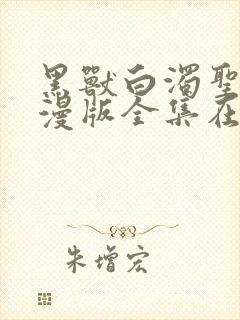 黑獸白濁聖
漫版全集在
朱增宏